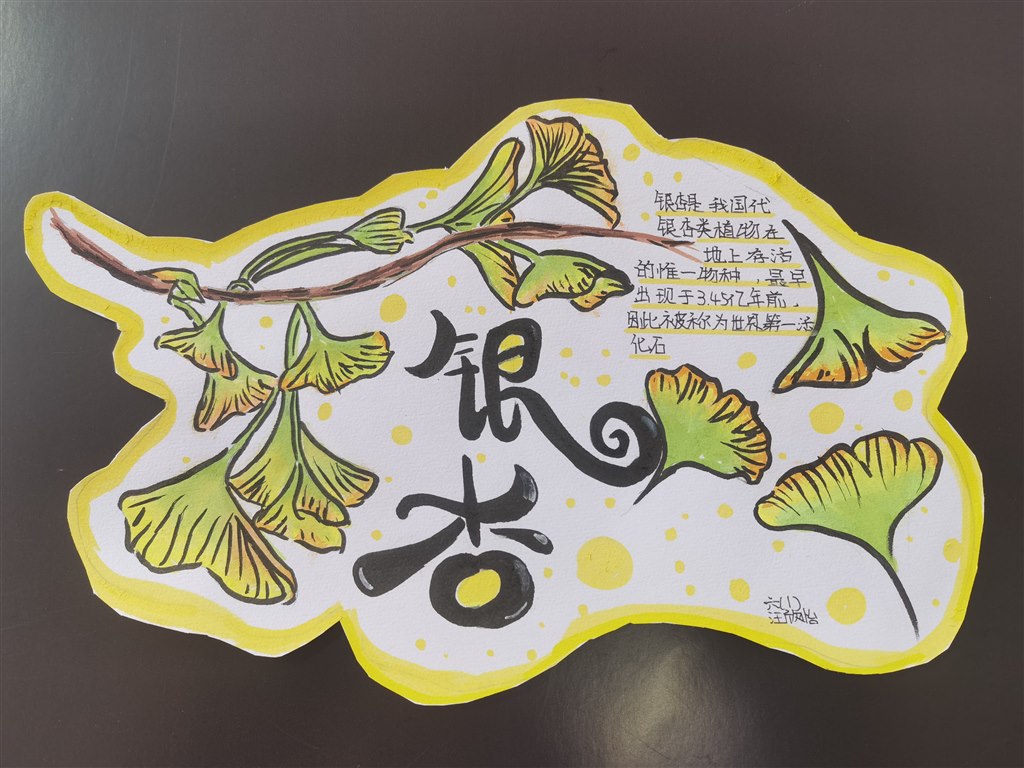 银杏
银杏是我国代
银杏类植物在
地上存活
的惟一物种，最早
出现于3.45亿年前，
因此被称为世界第一活
化石
六(1)